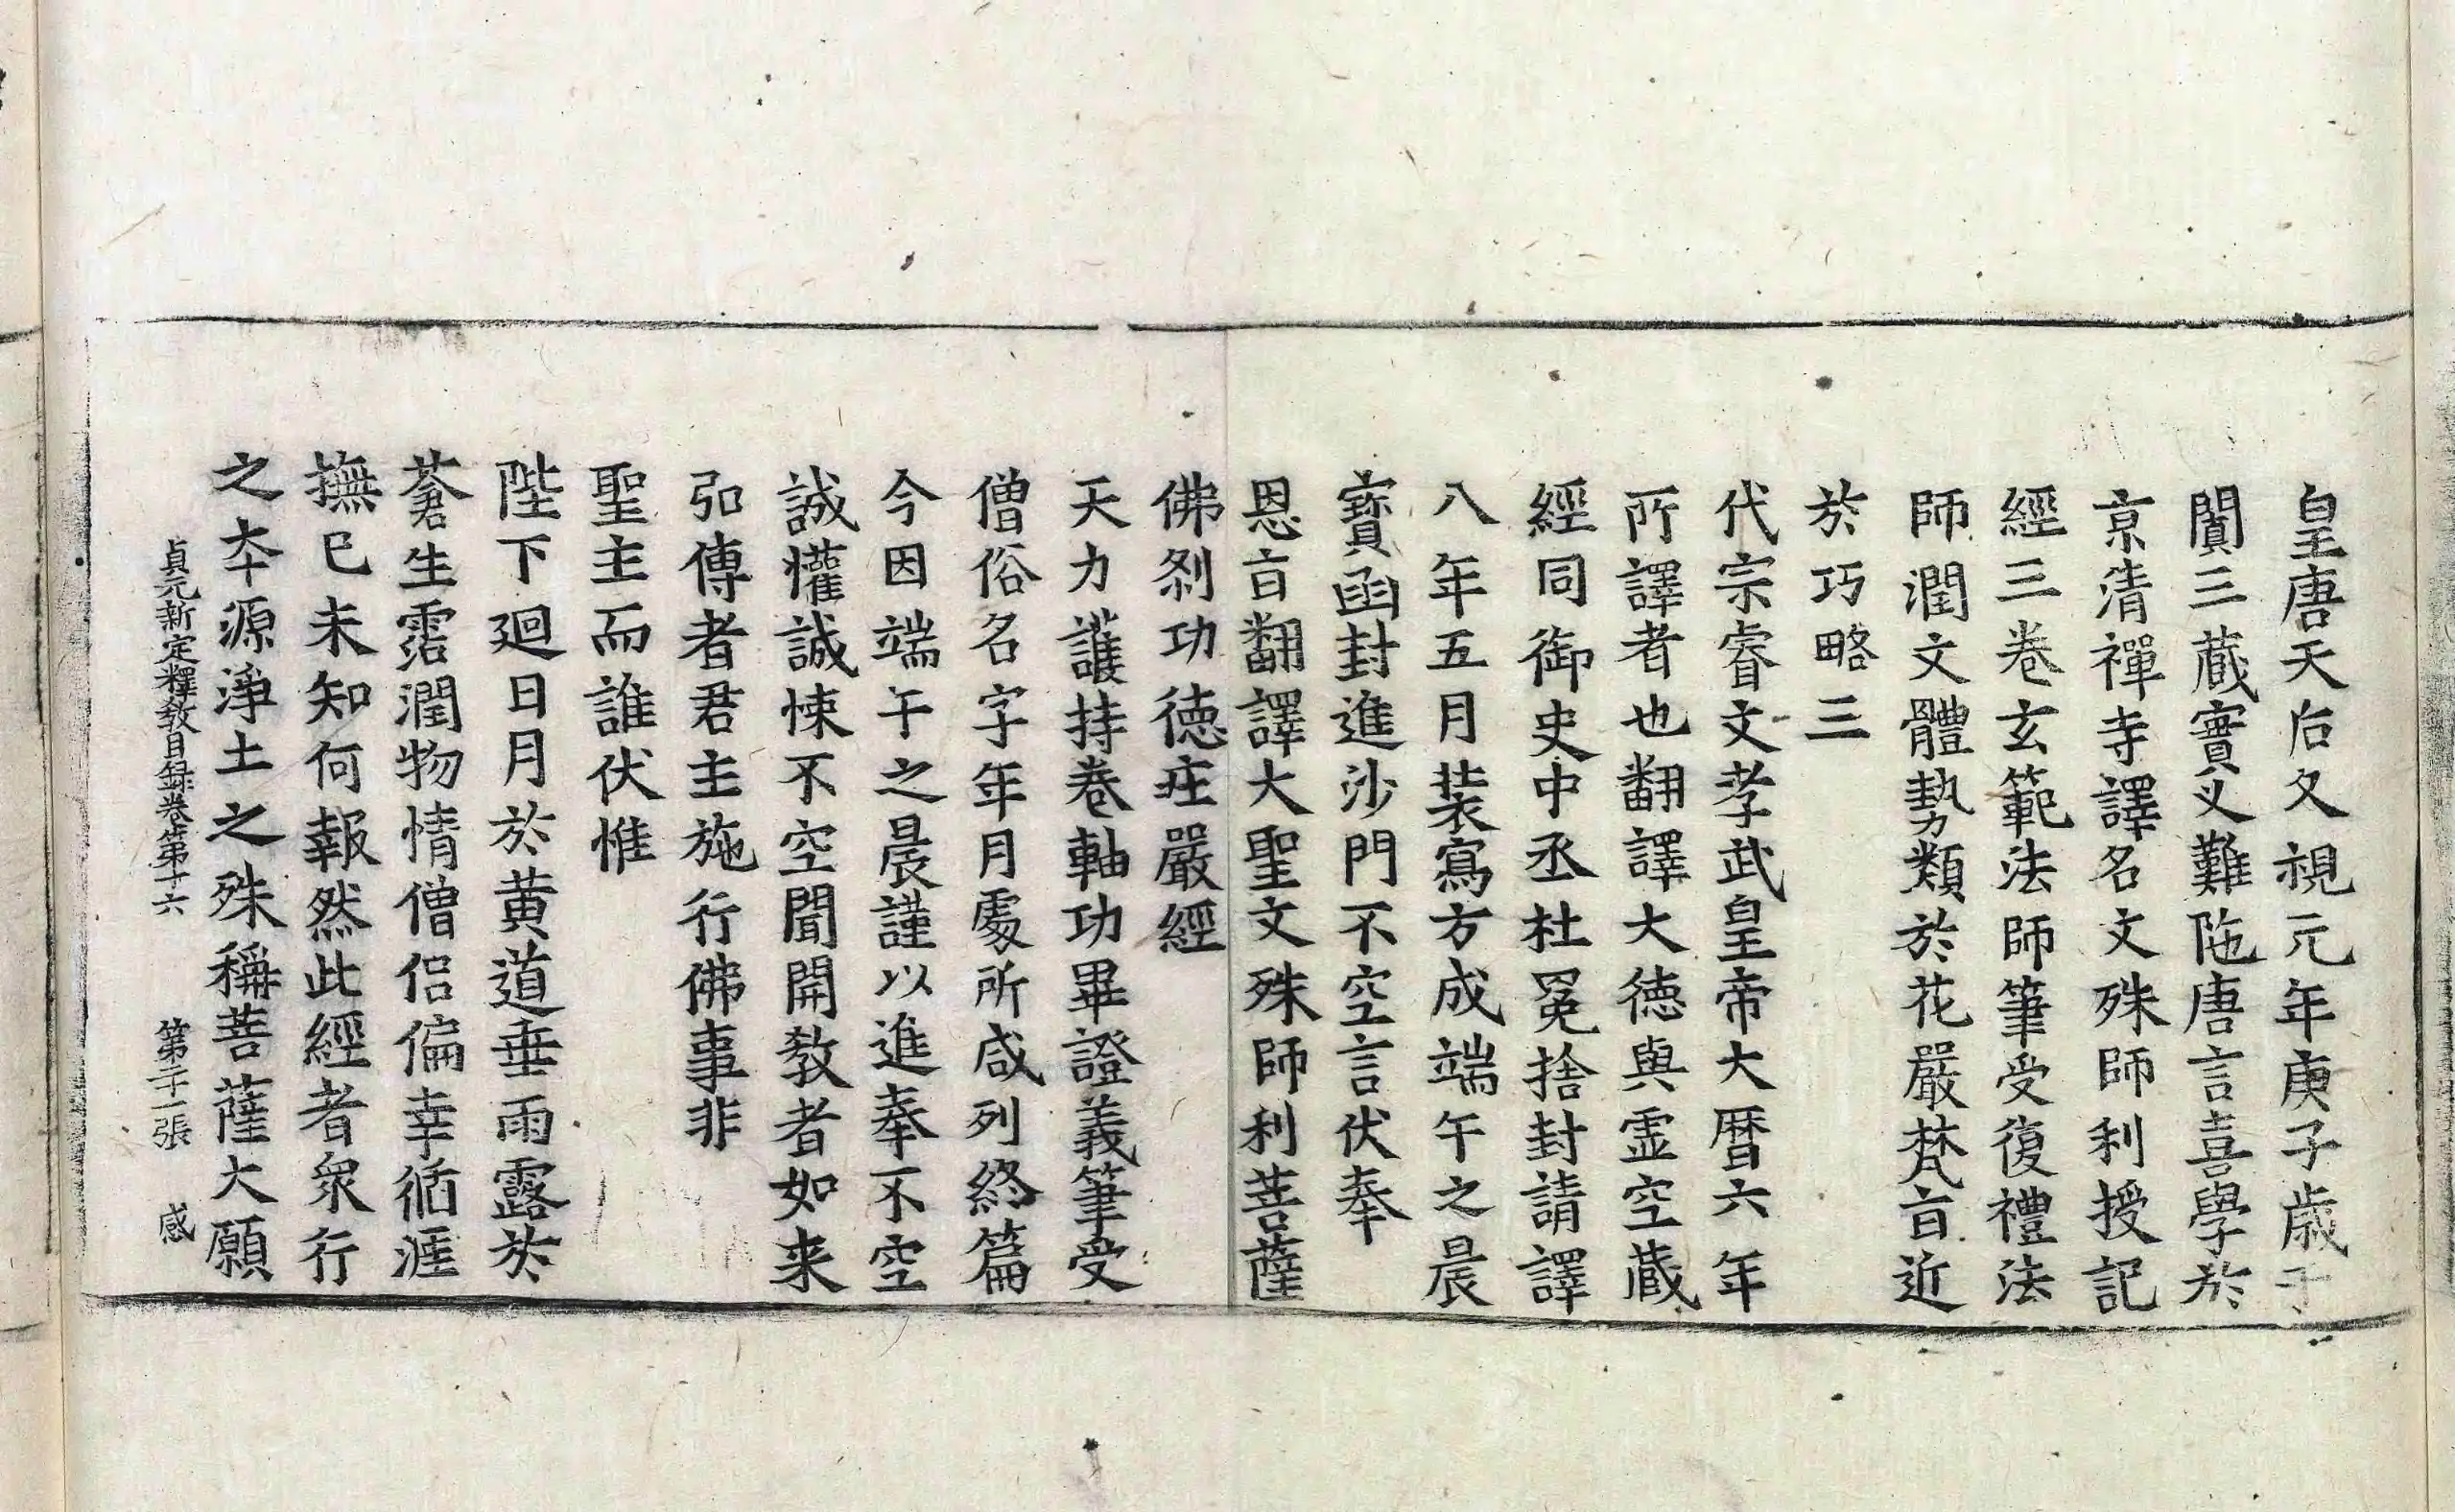 皇唐天后久視元年庚子歳于
闐三蔵實叉難陁唐言喜學於
京清禪寺譯名文殊師利授記
經三卷玄範法師筆受復禮法
師潤文體勢類於花嚴梵㫖近
於巧略三
代宗睿文孝武皇帝大暦六年
所譯者也翻譯大徳與虚空蔵
經同御史中丞杜冕捨封請譯
八年五月装寫方成端午之晨
寶函封進沙門不空言伏奉
恩㫖翻譯大聖文殊師利菩薩
佛剎功徳莊嚴經
天力護持卷軸功畢證義筆受
僧俗名字年月處所咸列終篇
今因端午之晨謹以進奉不空
誠懽誠悚不空聞開教者如来
弘傳者君主施行佛事非
聖主而誰伏惟
陛下廻日月於黄道垂雨露於
蒼生霑潤物情僧侣偏幸循涯
撫已未知何報然此經者衆行
之夲源淨土之殊稱菩薩大願
貞元新定釋教目録卷第十六 第二十一張 感